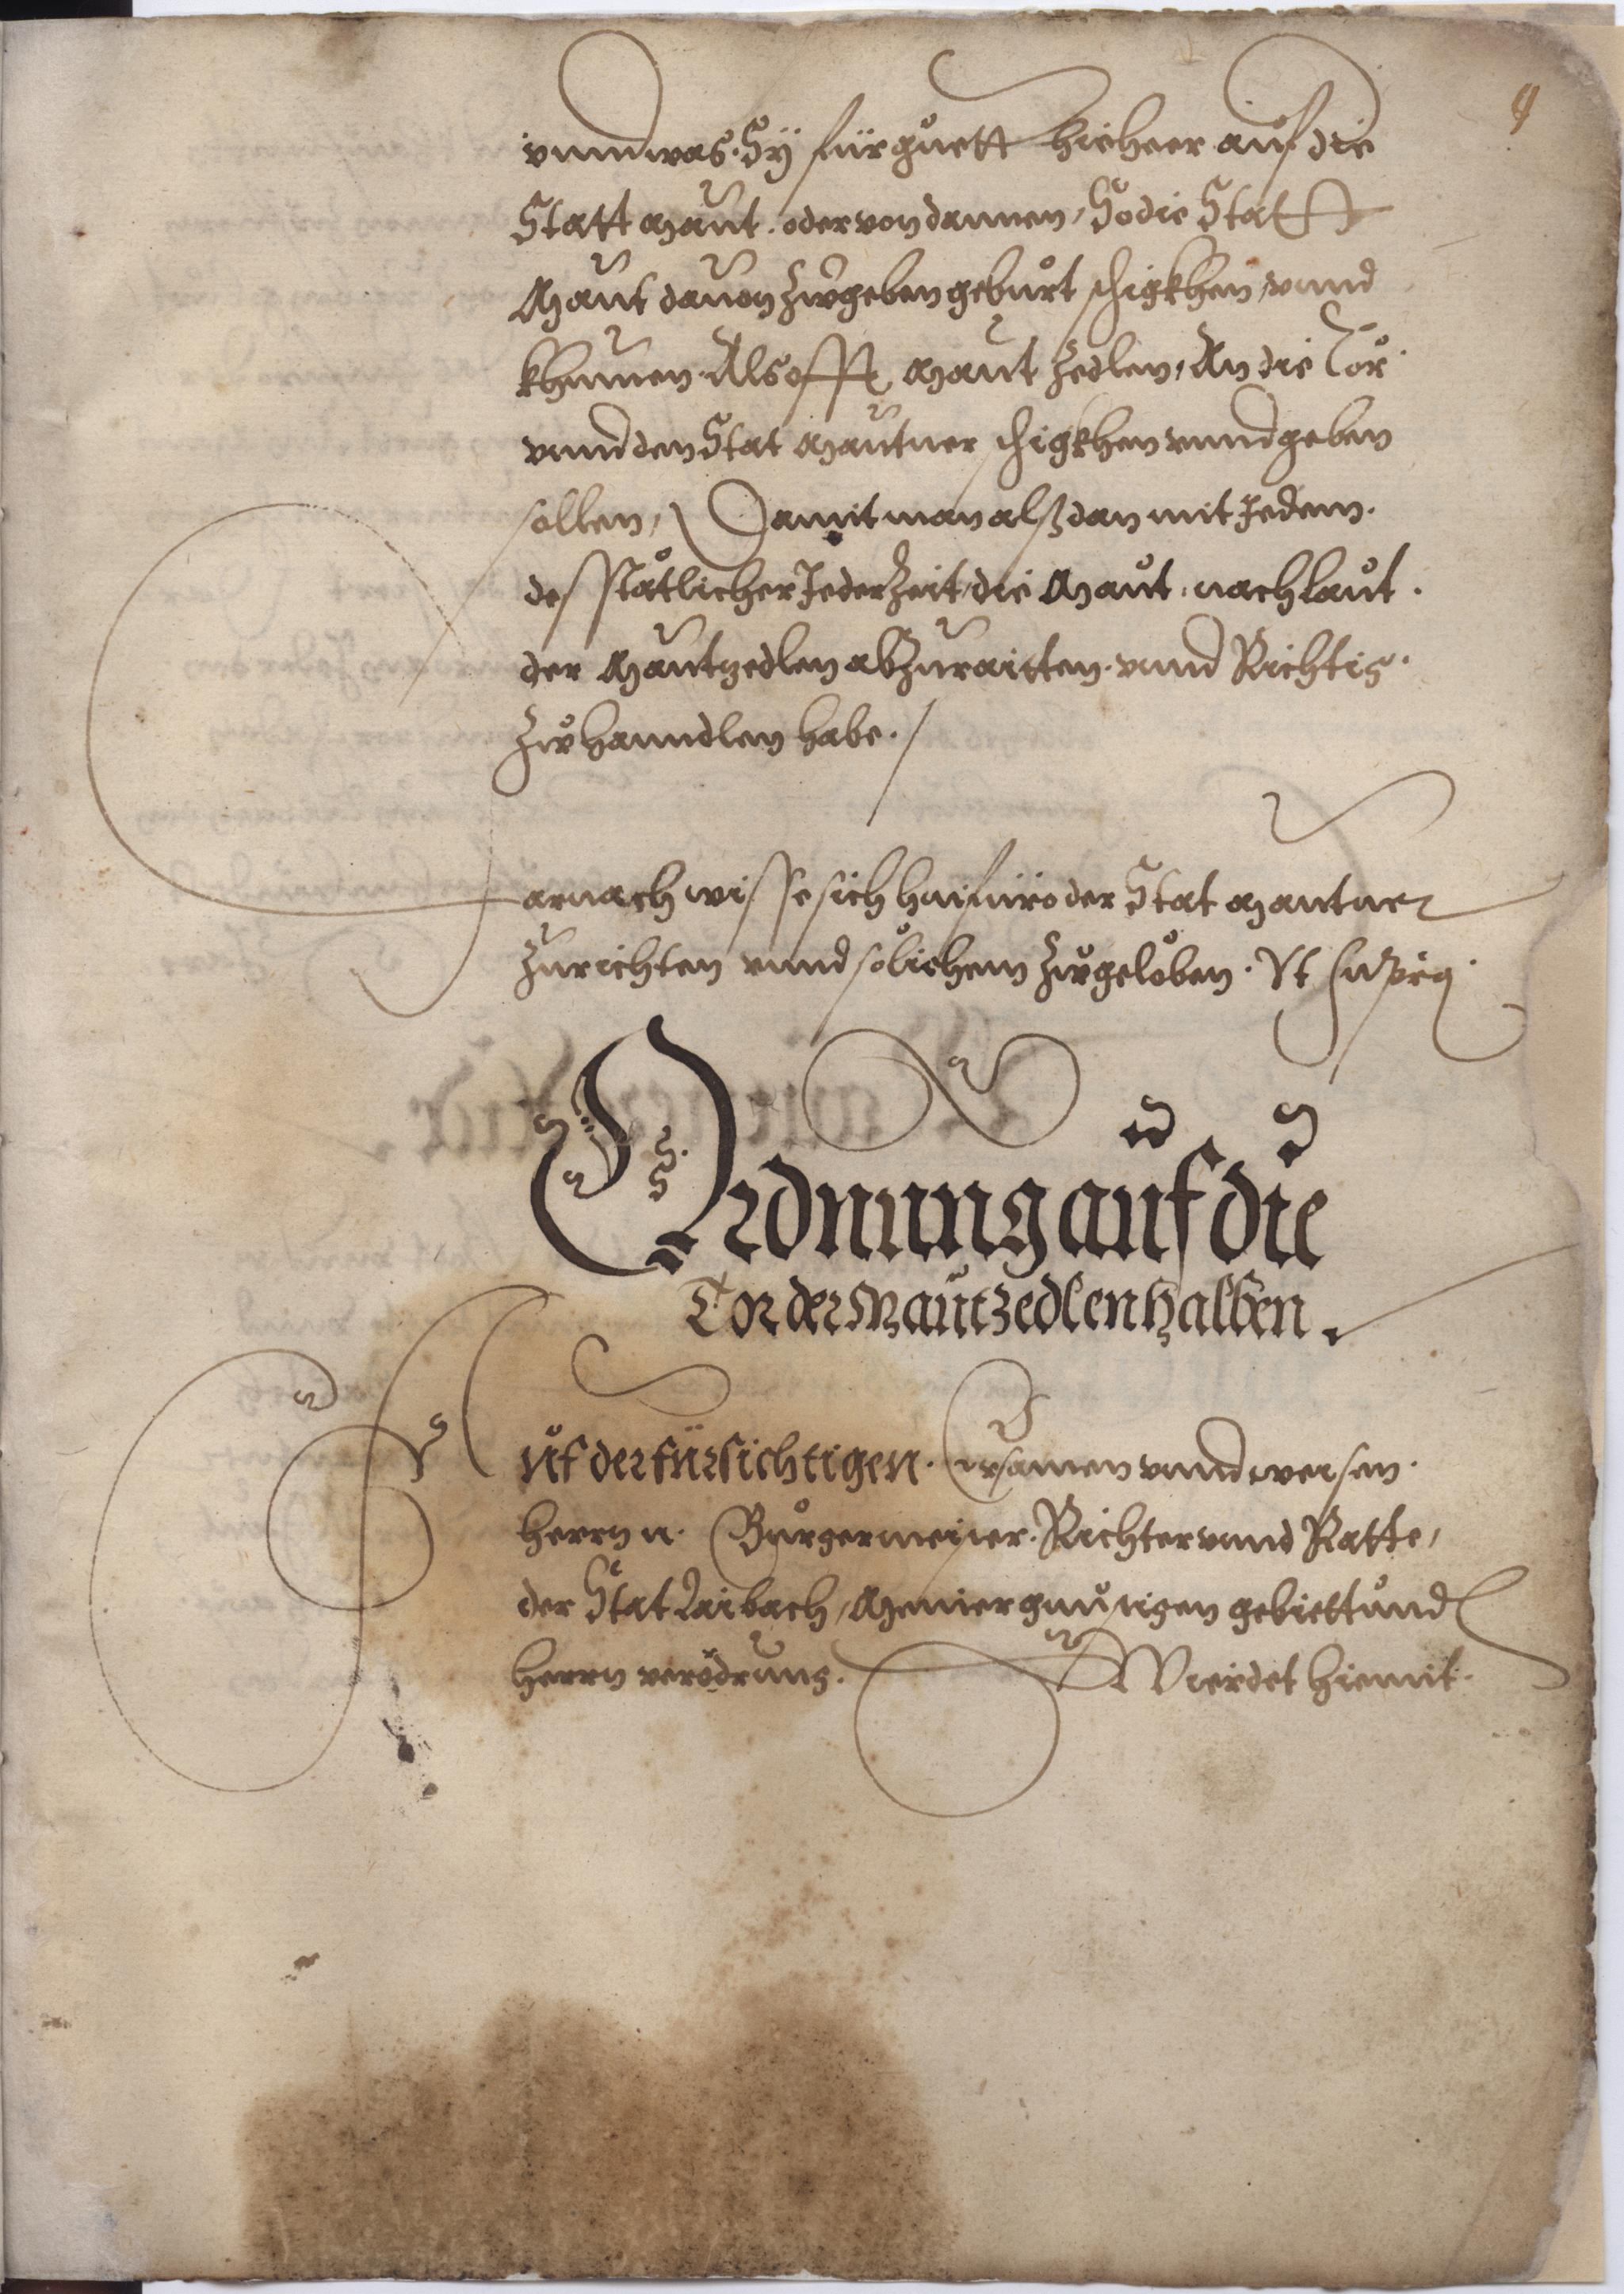 9
vnnd was Sÿ für guett hieheer auf die
Statt maut. oder von dannen, So die Statt
Maut dauon zu geben geburt schigkhen, vnnd
khumen. Als offt, maut zedlen, An die Tör
vnnd den Stat mautner schigkhen vnnd geben
sollen, Damit man alßdan mit Jedem.
des stätlicher Jederzeit, die Maut, nach laut.
der mautzedlen abzuraitten. vnnd Richtig.
zu hanndlen habe./
Darnach wisse sich hinfüro der Stat mautner
zurichten vnnd sölichem zugeloben. Vt
Ordnung auf die
Tor der Mautzedlen halben.
Auf der fürsichtigen. Ersamen vnnd weisen.
herrn n. Burgermeister. Richter vnnd Ratte,
der Stat Laibach, Meiner gunstigen gebiettund
herrn verödrung. Wierdet hiemit.